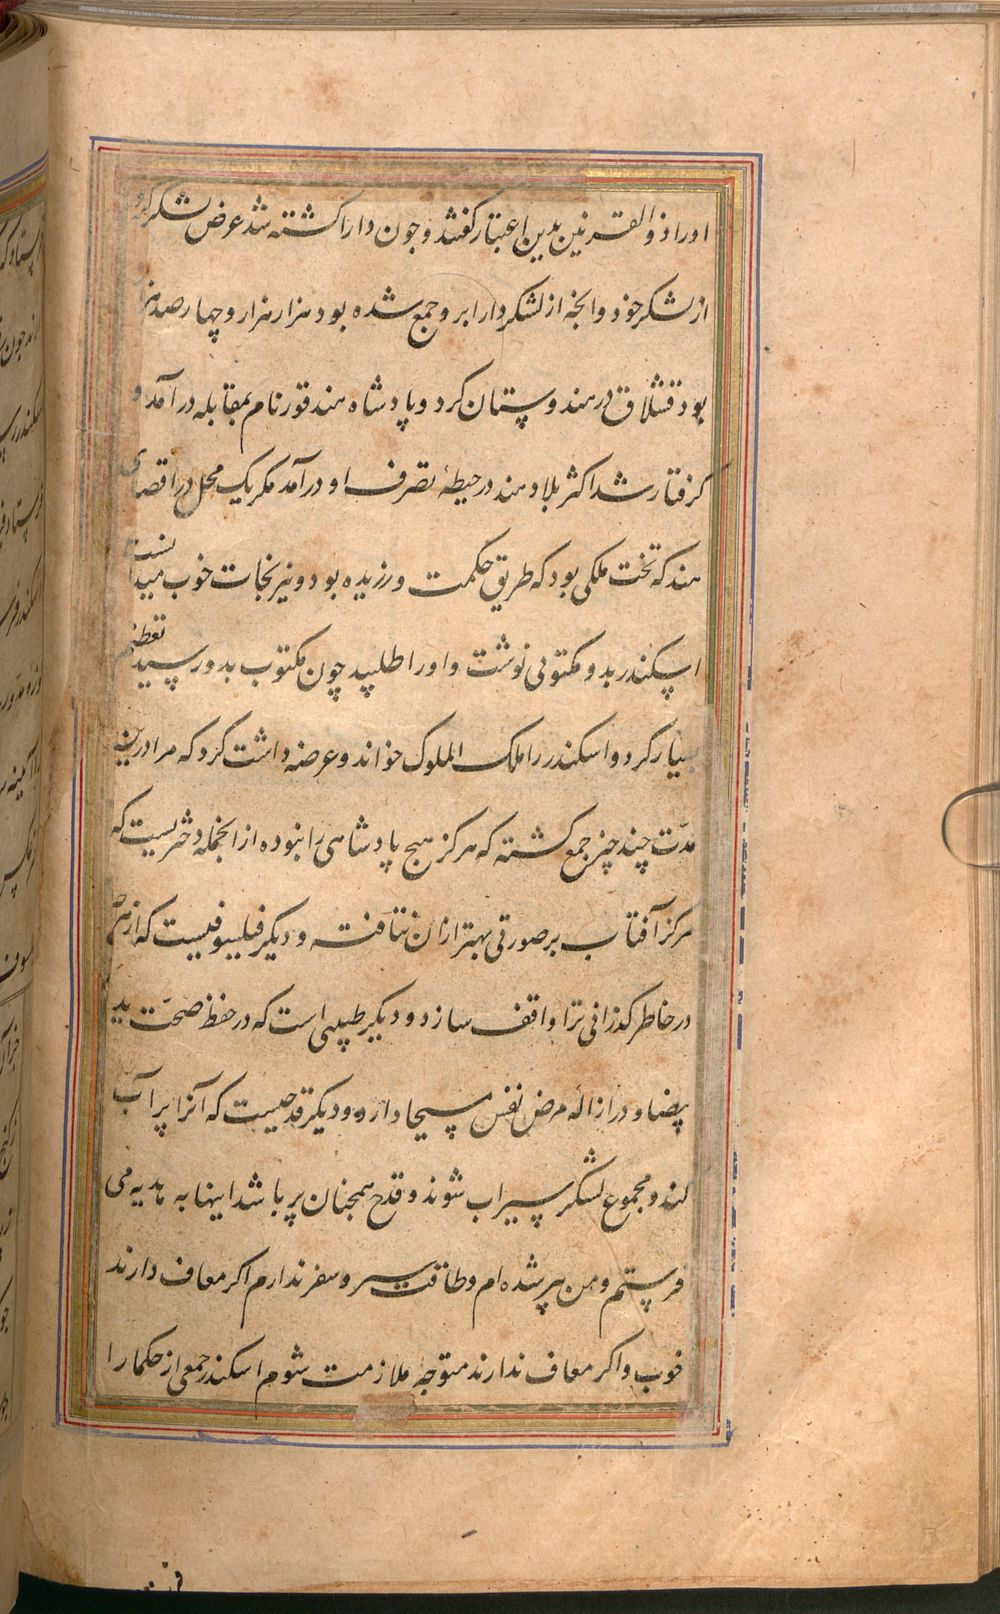 او را ذوالقرنین بدین اعتبار گفتند و چون دارا کشته شد عرض لشکر کرد
از لشکر خود و آنچه از لشکر دارا برو جمع شده بود هزار هزار و چهار صد هزار
بود قشلاق در هندوستان کرد و پادشاه هند فور نام بمقابله در آمد و
گرفتار شد اکثر بلاد هند در حیطهٔ تصرف او در آمد مگر یک محل در اقصای
هند که تخت ملکی بود که طریق حکمت ورزیده بود و نیرنجات خوب میدانست
اسکندر بدو مکتوبی نوشت و او را طلبید چون مکتوب بدو رسید تعظیم
بسیار کرد و اسکندر را ملک الملوک خواند و عرضه داشت کرد که مرا درین
مدّت چند چیز جمع گشته که هرگز هیچ پادشاهی را نبوده از انجمله دختریست که
هرگز آفتاب بر صورتی بهتر ازان نتافته و دیگر فیلسوفیست که از هرچه
در خاطر گذرانی ترا واقف سازد و دیگر طبیبی است که در حفظ صحّت ید
بیضا و در ازاله مرض نفس مسیحا دارد و دیگر قدحیست که آنرا پر آب
کنند و مجموع لشکر سیراب شوند و قدح همچنان پر باشد اینها به هدیه می
فرستم و من پیر شده ام و طاقت سیر و سفر ندارم اگر معاف دارند
خوب و اگر معاف ندارند متوجه ملازمت شوم اسکندر جمعی از حکما را